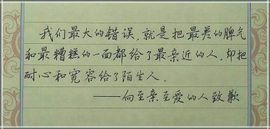 我们最大的错误,就是把最差的脾气
和最糟糕的一面都给了最亲近的人,却把
耐心和宽容给了陌生人。
——向至亲至爱的人致歉